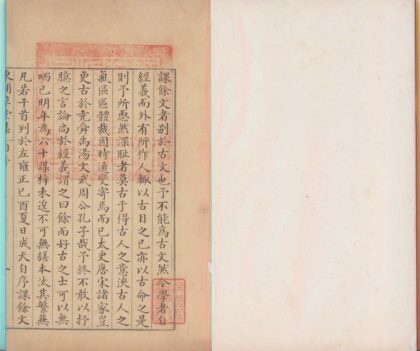 課餘文者別於古文也予不能為古文然今學者自
經義而外有所作人輙以古目之已亦以古命之是
則予所惄然深耻者莫古于得古人之意浹古人之
氣區區體裁因時遞變寄焉而已太史唐宋諸家豈
更古於堯舜禹湯文武周公孔子哉予終不敢以抒
臆之言論高於經義謂之曰餘而好古之士可以無
哂已明年為六十課梓未遑不可無繕本汰其繁蕪
凡若干首列於左雍正已酉夏日成天自序課餘文